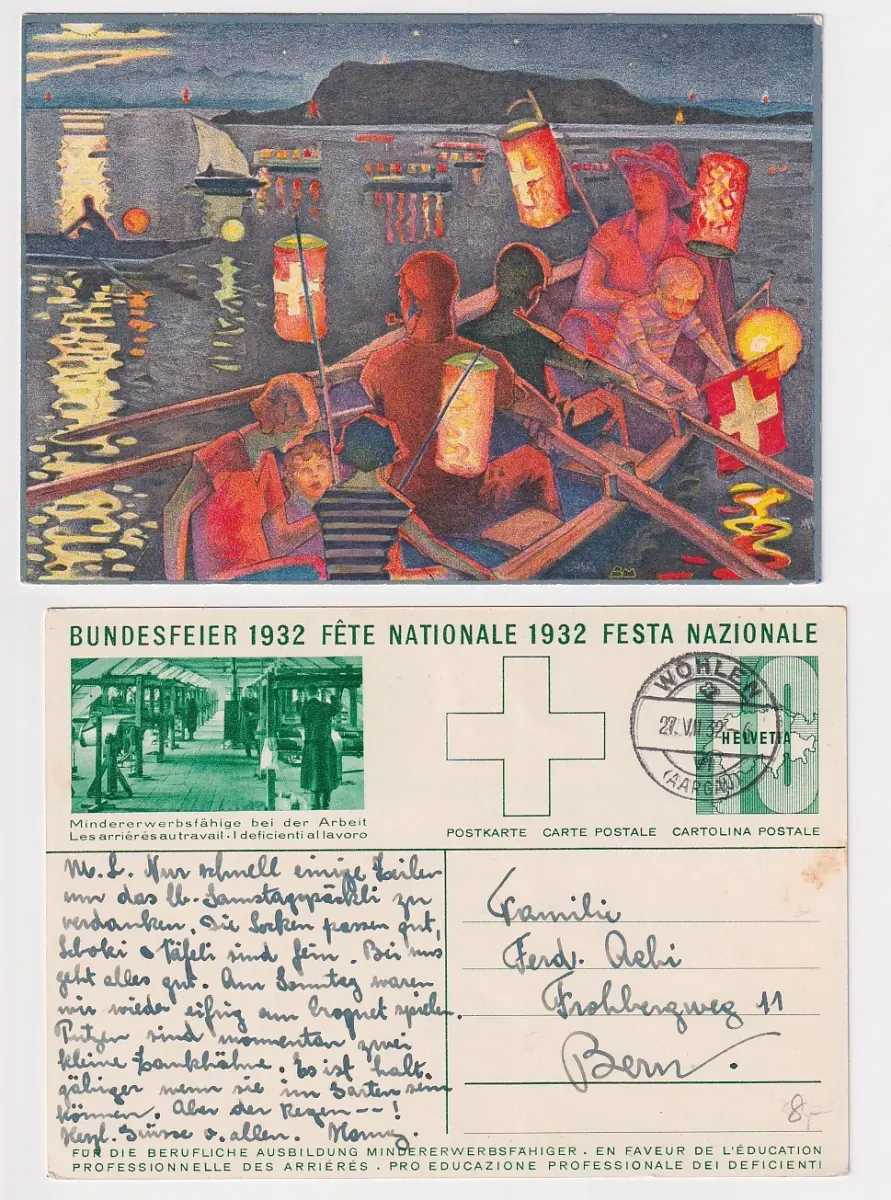 BM
BUNDESFEIER 1932 FÊTE NATIONALE 1932 FESTA NAZIONALE
WOHLEN
27. VII. 32
VI
(AARGAU)
10
HELVETIA
Mindererwerbsfähige bei der Arbeit
Les arriérés au travail · I deficienti al lavoro
POSTKARTE CARTE POSTALE CARTOLINA POSTALE
M. L. Nur schnell einige Zeilen
um das lb. Samstagspäckli zu
verdanken. Die Socken passen gut,
Schoki & Täfeli sind fein. Bei uns
geht alles gut. Am Sonntag waren
wir wieder eifrig am Croquet spielen.
sind momentan zwei
kleine Zankhähne. Es ist halt
gäbiger wenn sie im Garten sein
können. Aber der Regen -- !
Herzl. Grüsse v. allen.
Familie
Ferd. Aebi
Frohbergweg 11
Bern.
8,-
FÜR DIE BERUFLICHE AUSBILDUNG MINDERERWERBSFÄHIGER · EN FAVEUR DE L'ÉDUCATION
PROFESSIONNELLE DES ARRIÉRÉS · PRO EDUCAZIONE PROFESSIONALE DEI DEFICIENTI